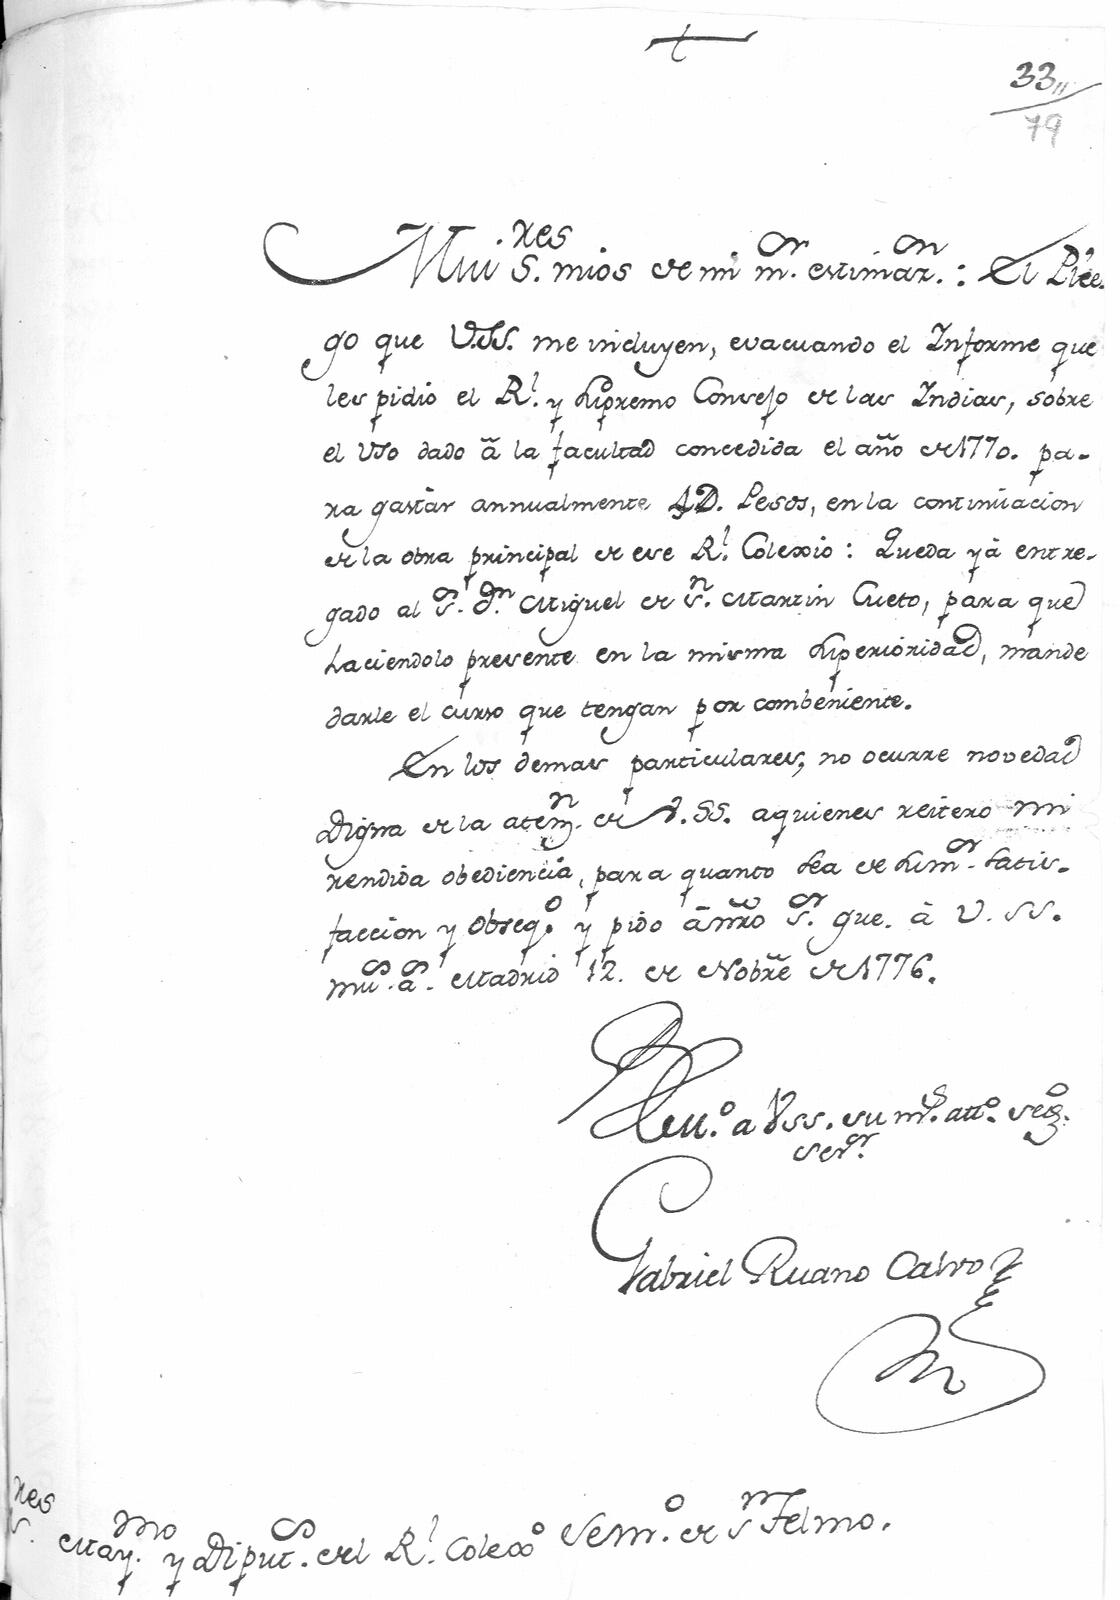 33,,
79
Mui S.res mios de mi m.or estimaz.on: El Plie-
go que V.SS. me incluyen, evacuando el Informe que
les pidió el R.l y Supremo Consejo de las Indias, sobre
el uso dado â la facultad concedida el año de 1770. pa-
ra gastar annualmente 4D. Pesos, en la continuacion
de la obra principal de ese R.l Colexio: Queda yá entre-
gado al S.or D.n Miguel de S.n Martin Cueto, para que
haciendolo presente en la misma Superioridad, mande
darle el curso que tengan por combeniente.
En los demas particulares, no ocurre novedad
Digna de la atenz.n de V.SS. aquienes reitero mi
rendida obediencia, para quanto sea de su m.or satis-
faccion y obseq.o y pido â nrō S.or gue. á V.SS.
mu.s a.s Madrid 12. de Nobrē de 1776.
a Vss. su m.s att.o seg.o
ser.or
Gabriel Ruano Calvo
S.res May.mo y Diput.s del R.l Colex.o Sem.o de S.n Telmo.